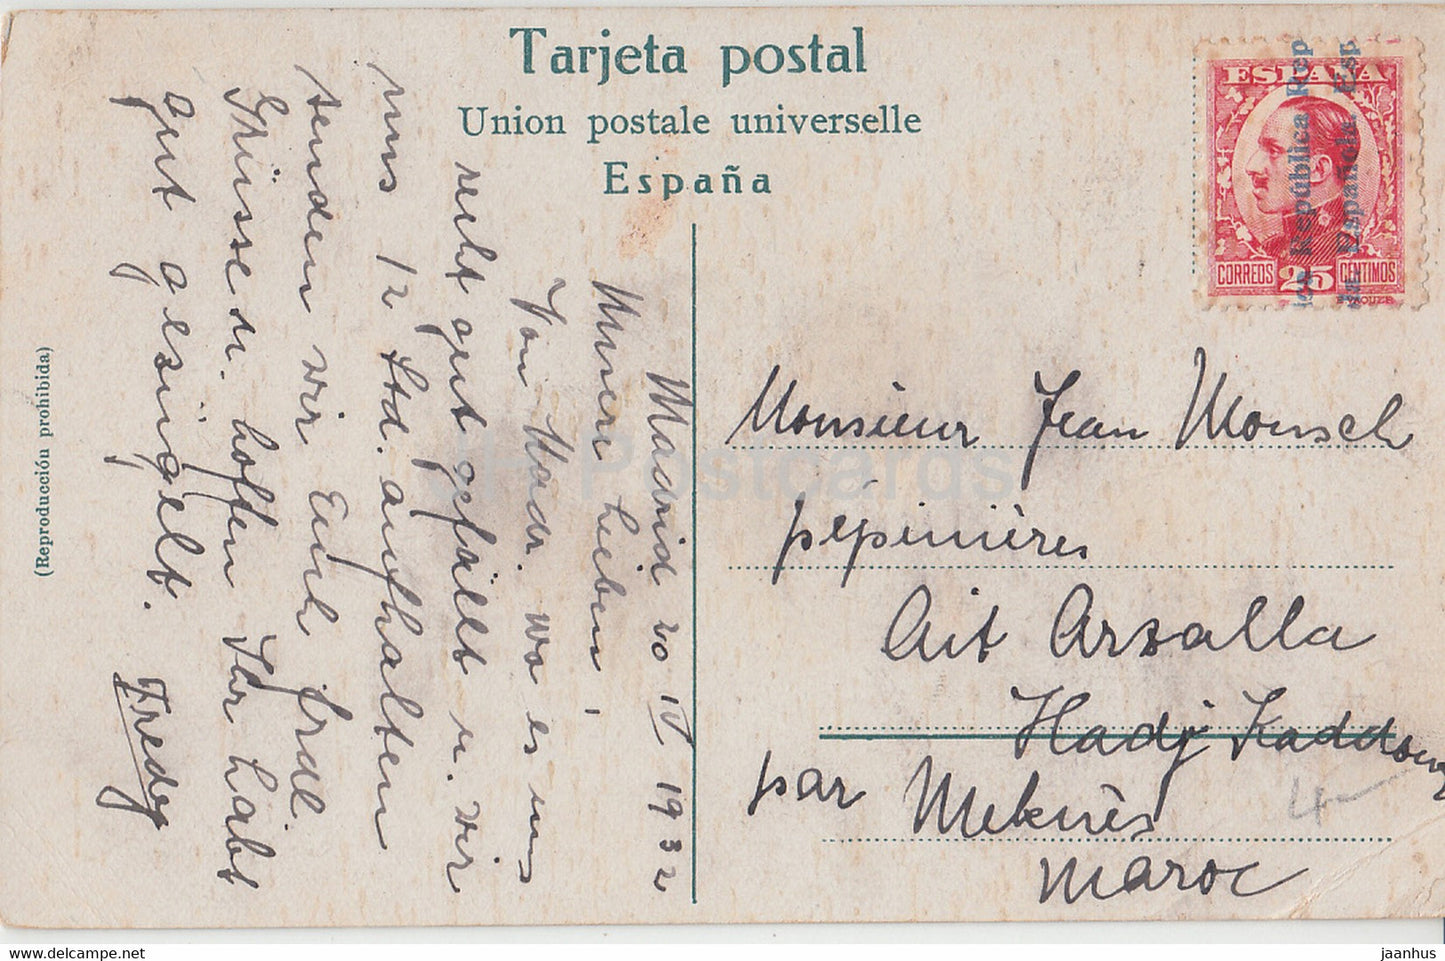 Tarjeta postal
Union postale universelle
España
(Reproducción prohibida)
ESPAÑA
CORREOS 25 CENTIMOS
República Rep
Española. Esp
Madrid 20 IV 1932
Meine Lieben!
Von Madr. wo es uns
recht gut gefällt u. wir
uns 12 Std. aufhalten
senden wir Euch
Grüsse u. hoffen Ihr habt
gut
Fredy
Monsieur Jean Monsch
pépinières
Ait Arzalla
Hadj Kaddour
par Meknès
Maroc
4
JH Postcards
jaanhus